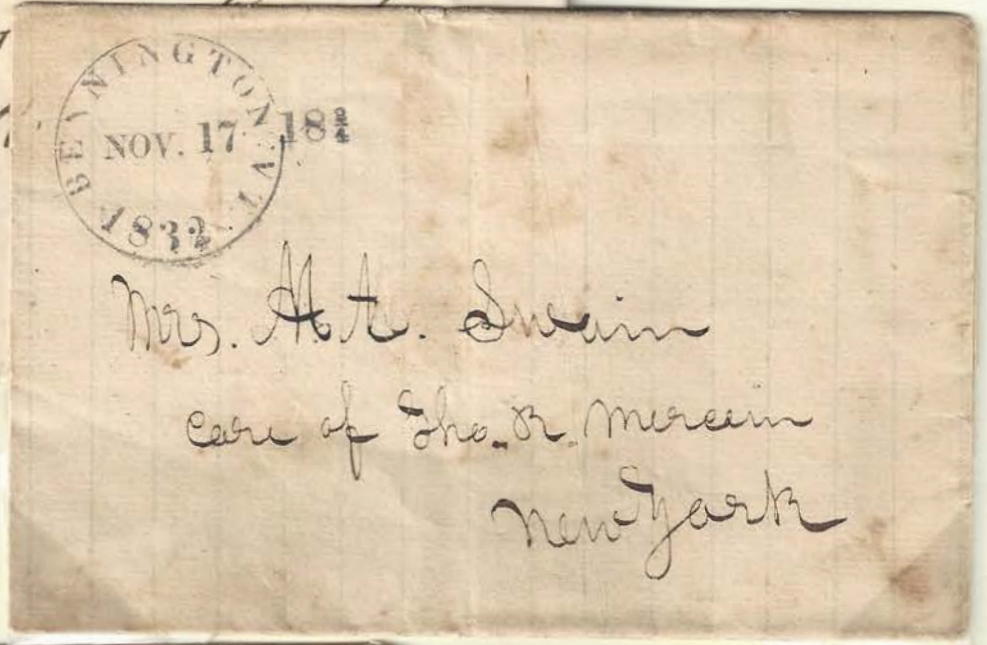 BENNINGTON VT.
NOV. 17
1832
18¾
Mrs. M. A. Swaim
care of Tho. R. Mercein
New York